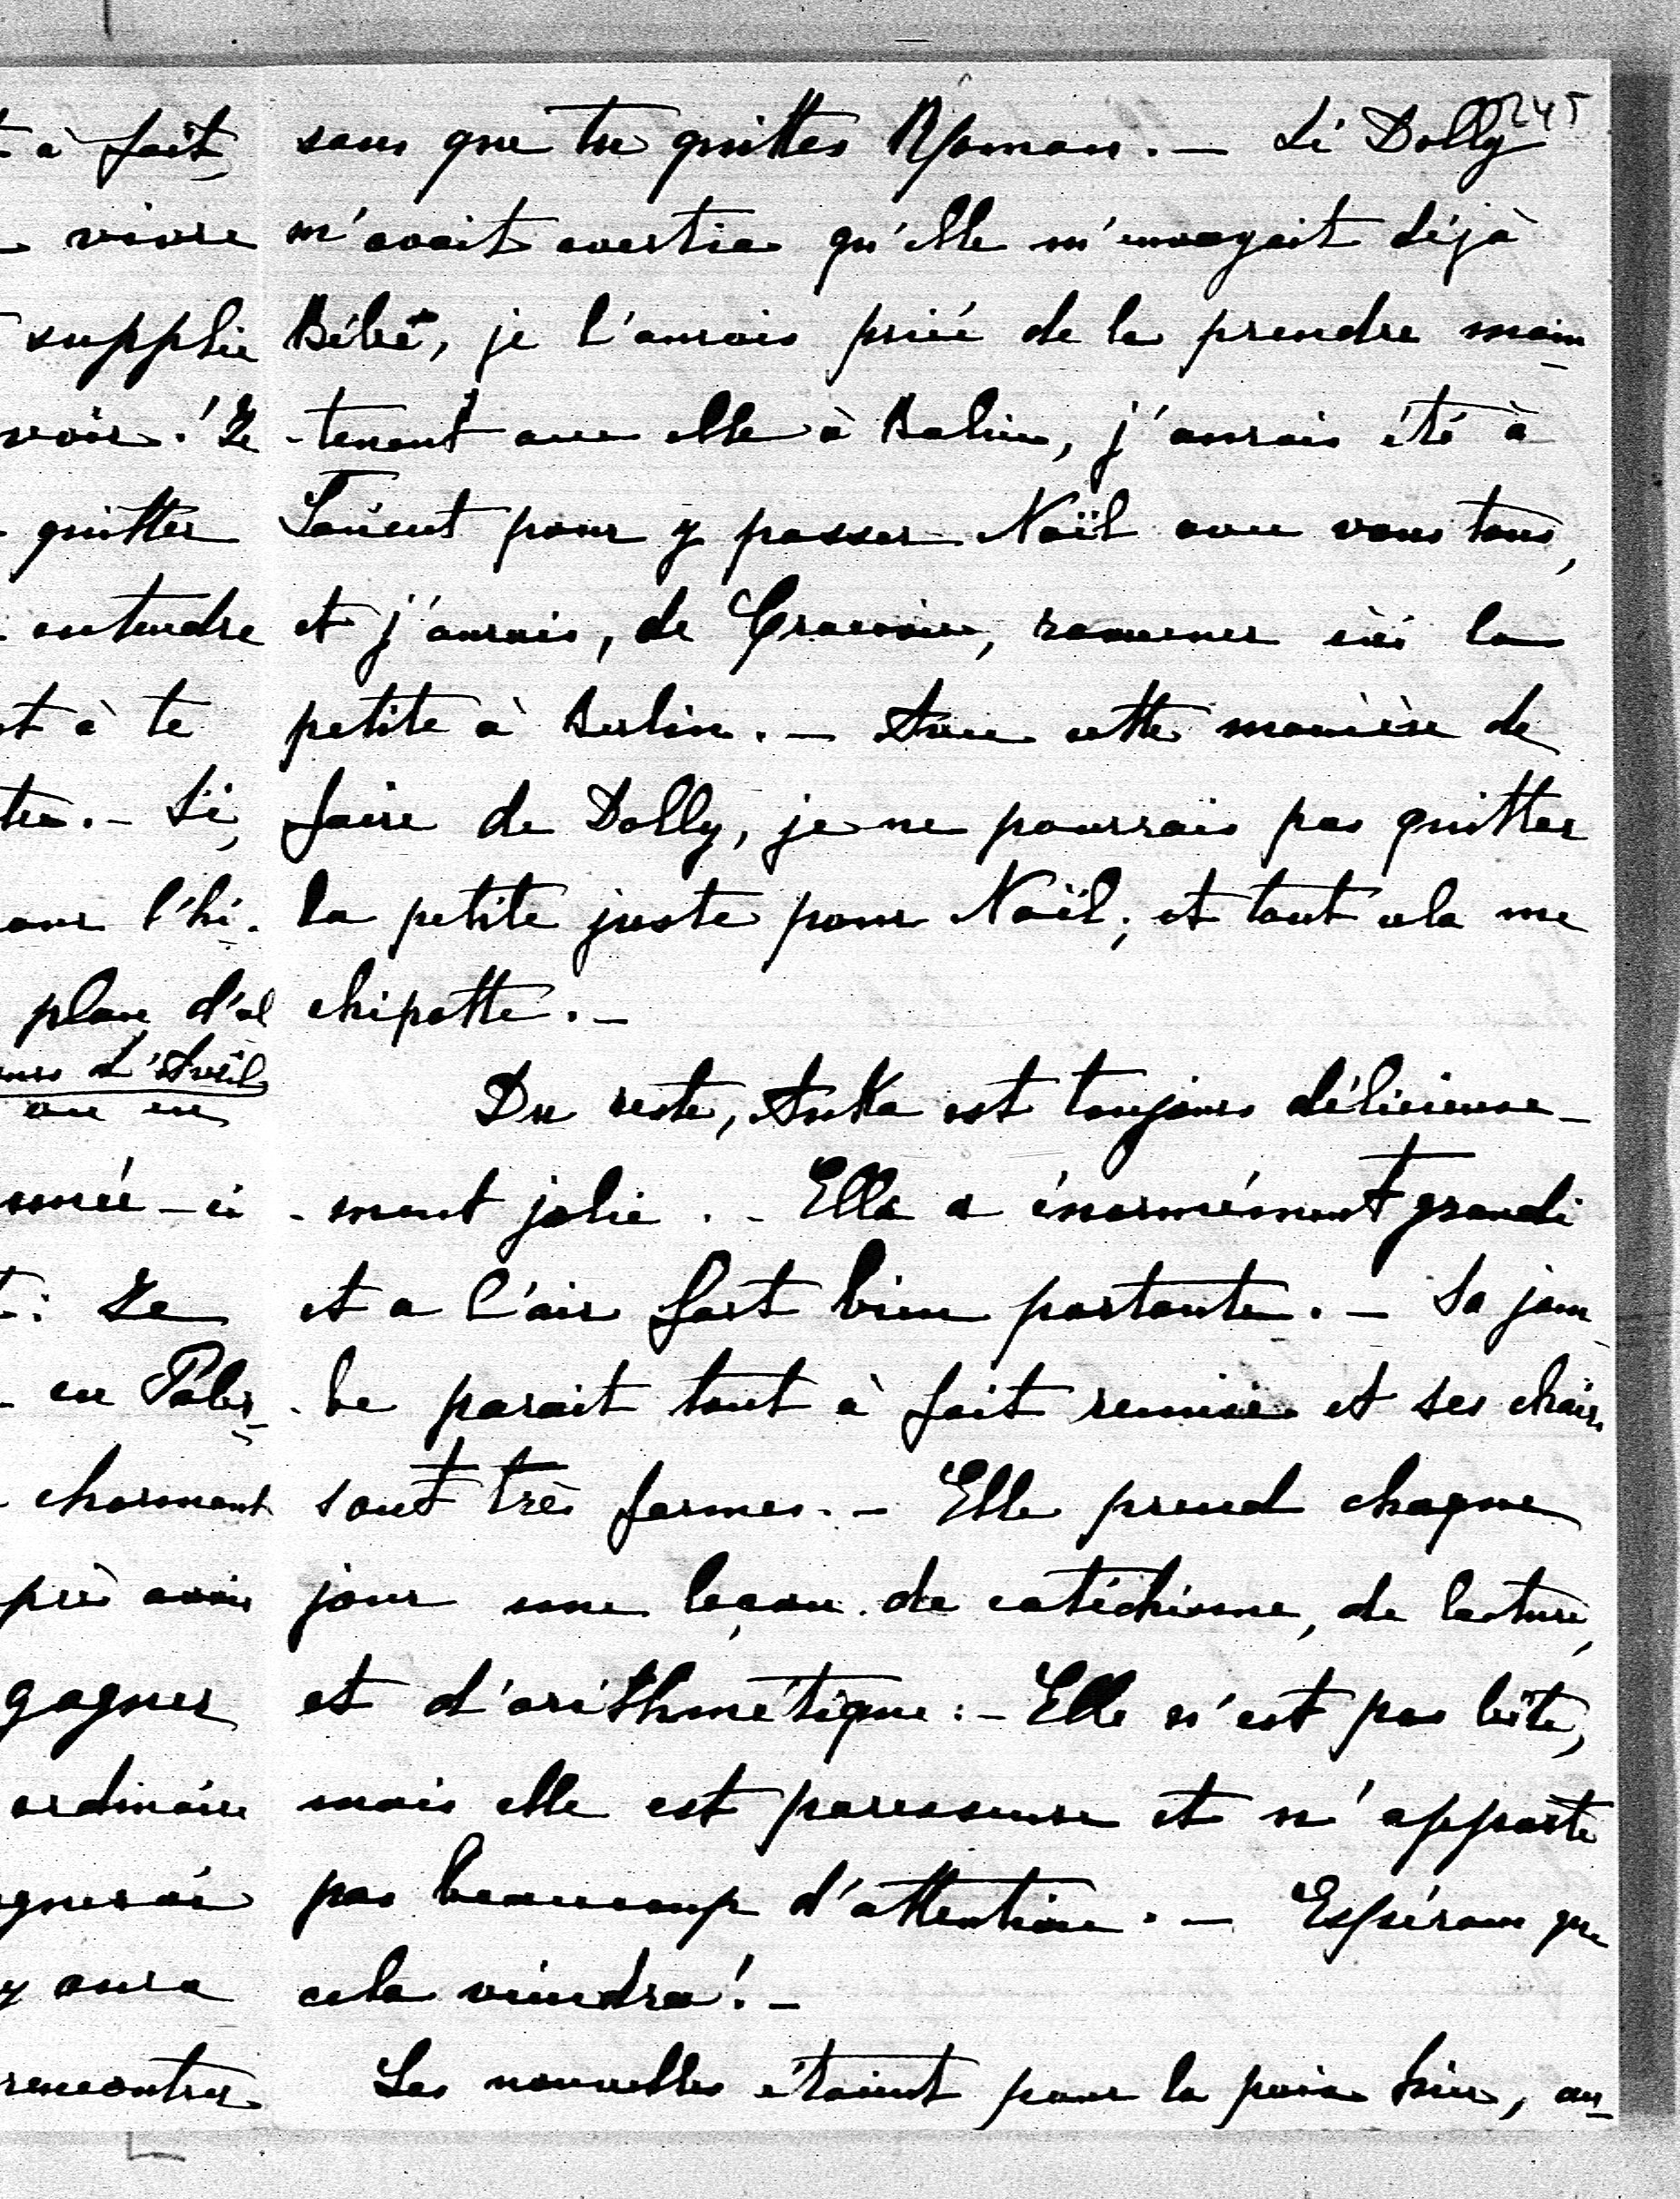 245
sans que tu quittes Maman. — Si Dolly
m'avait avertie qu'elle m'envoyait déjà
Bébé, je l'aurais priée de la prendre main
-tenant avec elle à Berlin, j'aurais été à
Łańcut pour y passer Noël avec vous tous,
et j'aurais, de Cracovie, ramener ici la
petite à Berlin. — Avec cette manière de
faire de Dolly, je ne pourrais pas quitter
la petite juste pour Noël; et tout cela me
chipotte. —
Du reste, Anka est toujours délicieuse-
-ment jolie. - Elle a énormément grandi
et a l'air fort bien portante. — Sa jam-
-be parait tout à fait remise et ses chairs
sont très fermes. - Elle prend chaque
jour une leçon de catéchisme, de lecture,
et d'arithmétique: - Elle n'est pas bête,
mais elle est paresseuse et n'apporte
pas beaucoup d'attention. — Espérons que
cela viendra! -
Les nouvelles étaient pour la paix hier, au-
à fait
vivre
supplie
voir! Je
quitter
entendre
à te
Si,
l'hi-
d'al
d'Avril
Je
en
charmant
avoir
gagner
ordinaire
y aura
rencontrer